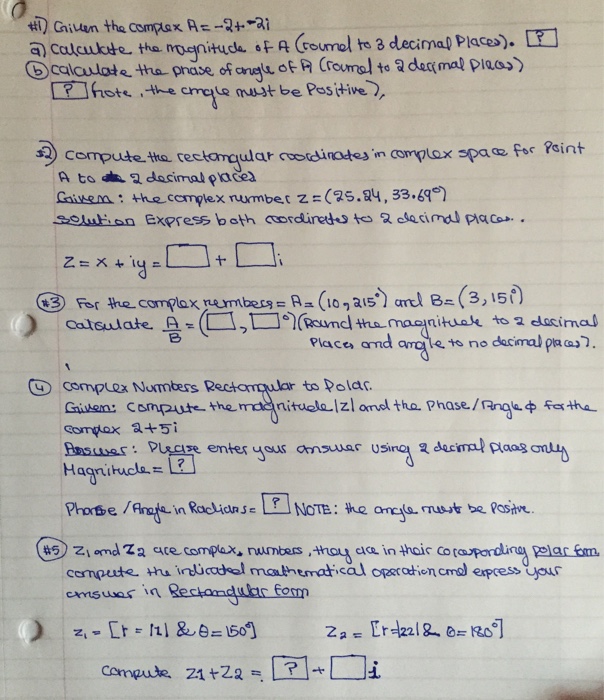 #1) Given the complex A = -2 + -2i
a) calculate the magnitude of A (round to 3 decimal places). [?]
b) calculate the phase of angle of A (round to 2 decimal places)
[?] (note, the angle must be positive),
#2) compute the rectangular coordinates in complex space for point
A to 2 decimal places
Given: the complex number z = (25.24, 33.69°)
solution Express both coordinates to 2 decimal places.
z = x + iy = □ + □i
#3) For the complex numbers = A = (10, 215°) and B = (3, 151°)
calculate A/B = (□, □°) (Round the magnitude to 2 decimal
places and angle to no decimal places).
4) complex Numbers Rectangular to Polar.
Given: compute the magnitude |z| and the phase/Angle ϕ for the
complex 2+5i
Answer: Please enter your answer using 2 decimal places only
Magnitude = [?]
Phase / Angle in Radians = [?] NOTE: the angle must be Positive.
#5) Z1 and Z2 are complex, numbers, they are in their corresponding polar form
compute the indicated mathematical operation and express your
answer in Rectangular form
Z1 = [r = 121 & θ = 150°] Z2 = [r = 221 & θ = 180°]
compute Z1 + Z2 = [?] + □i